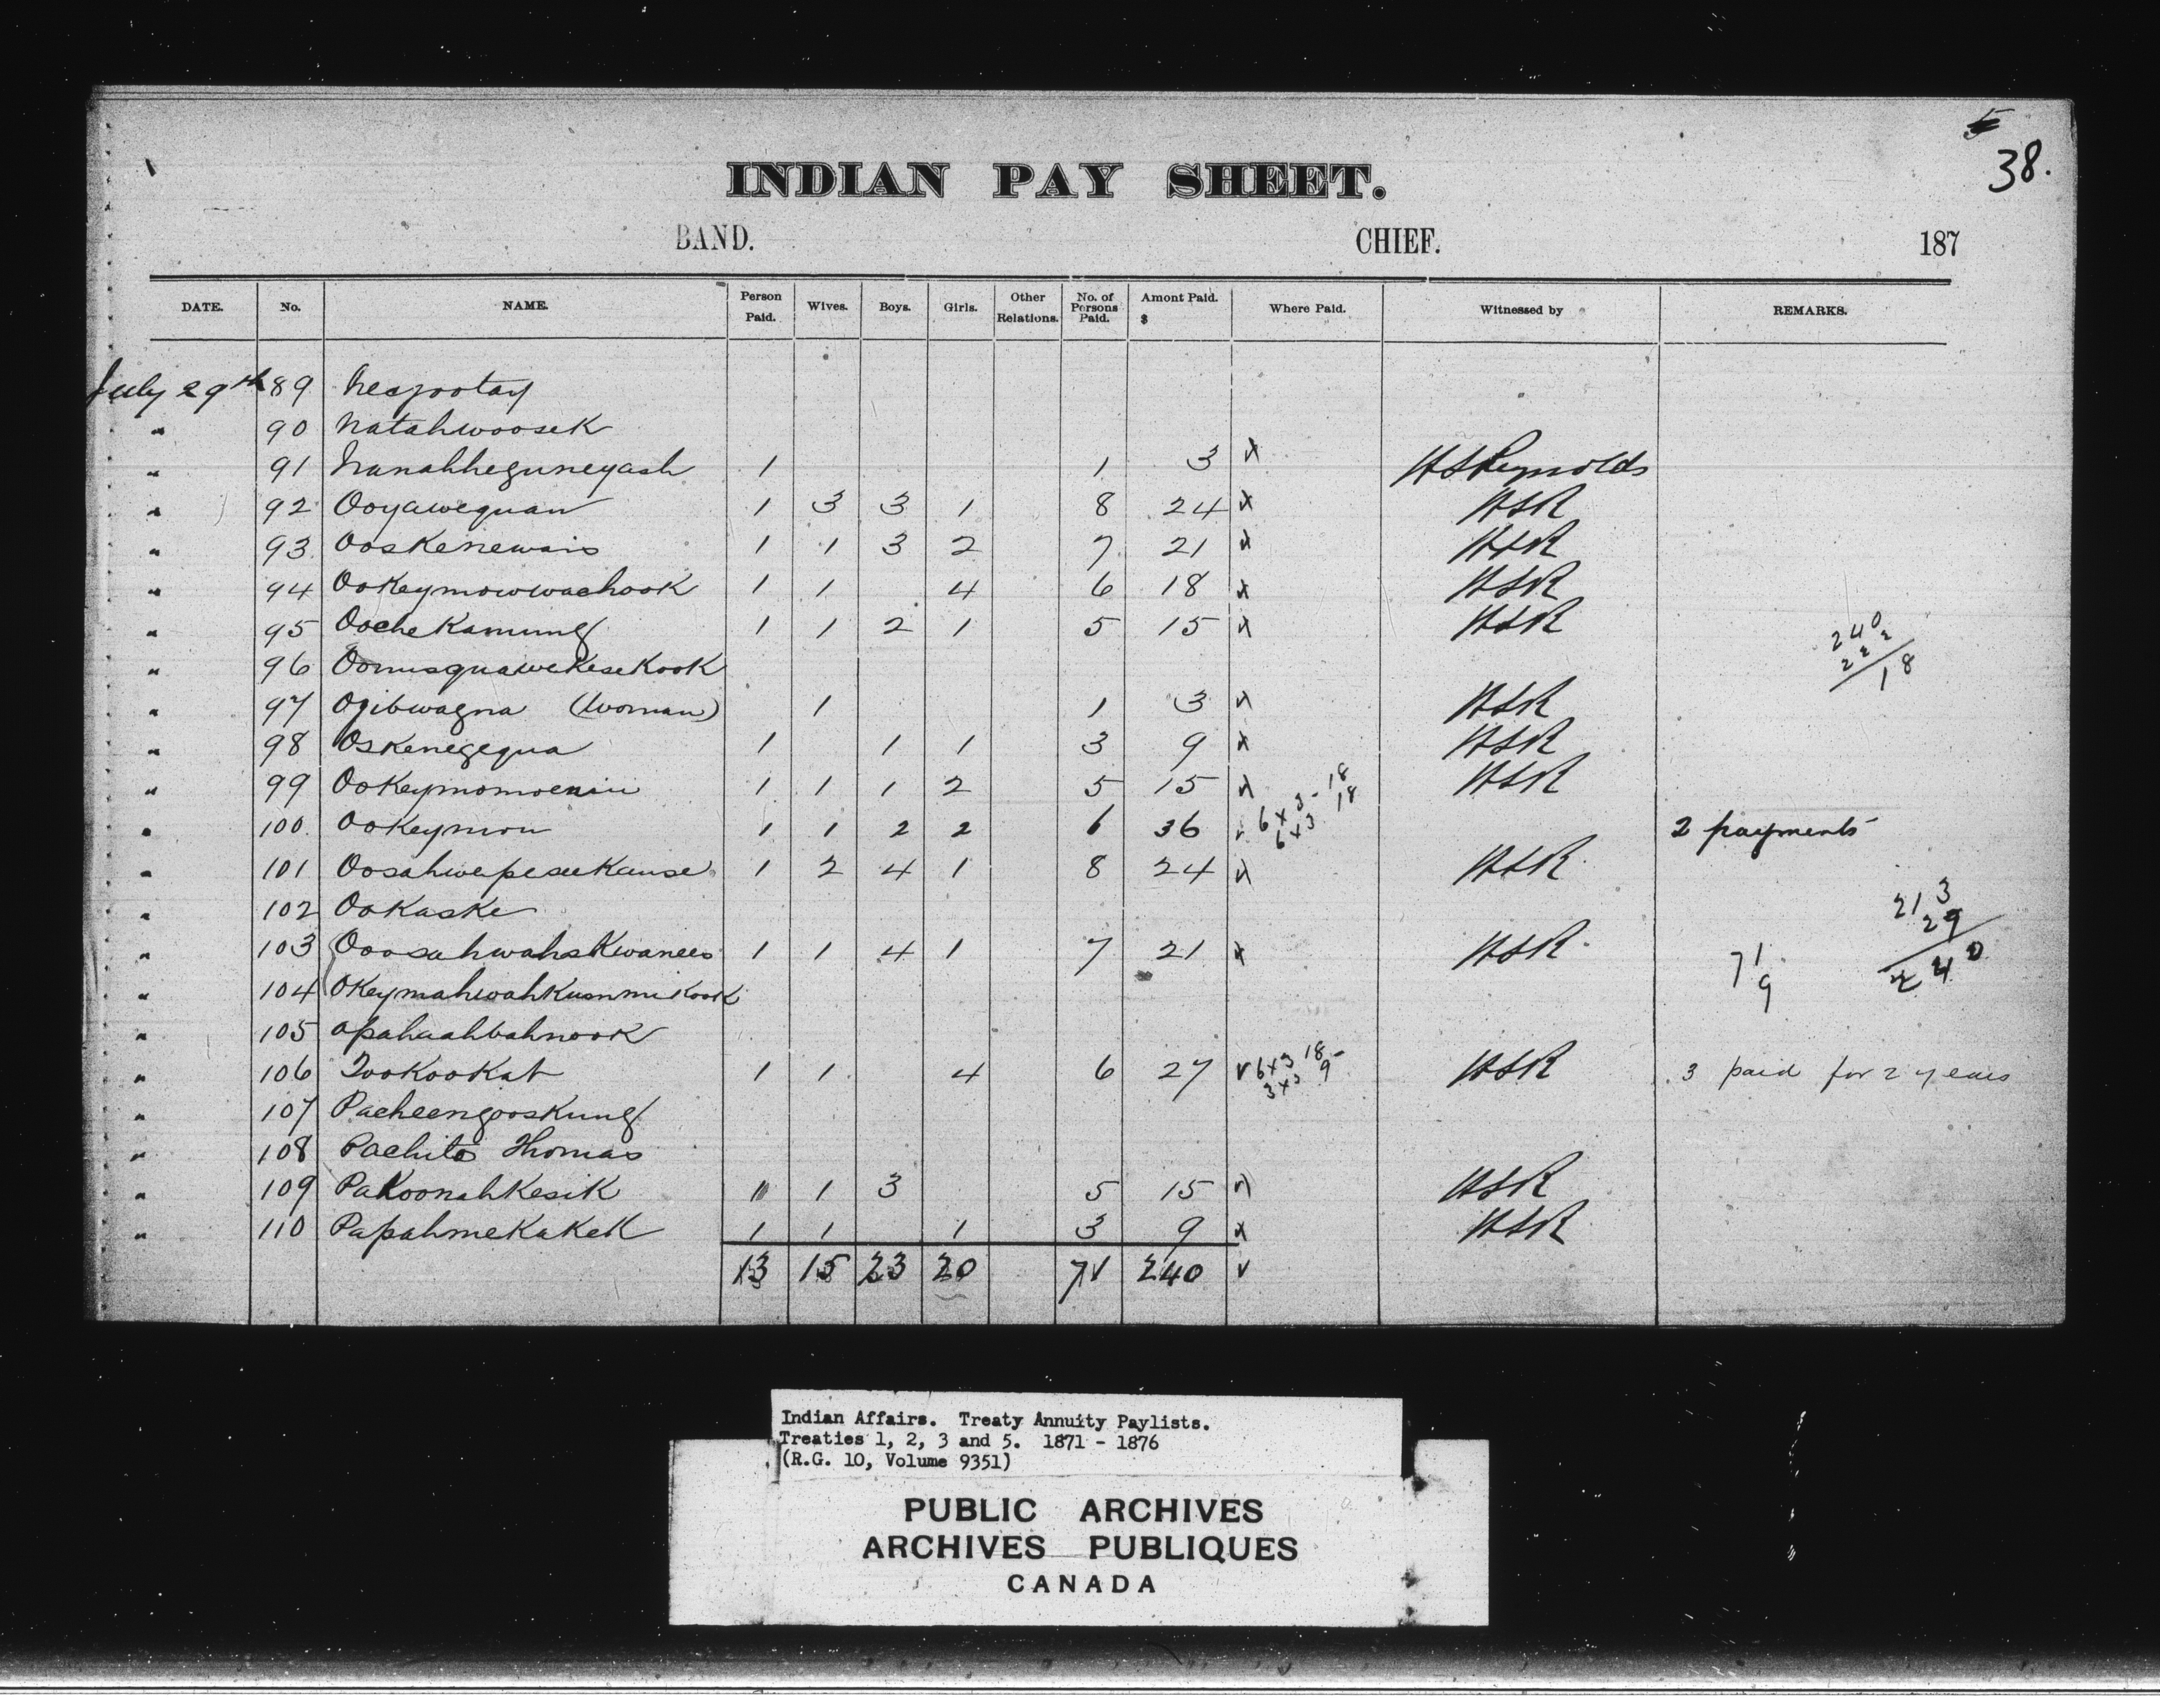 5
38.
INDIAN PAY SHEET.
BAND. CHIEF. 187
DATE. No. NAME. Person Paid. Wives. Boys. Girls. Other Relations. No. of Persons Paid. Amont Paid. $ Where Paid. Witnessed by REMARKS.
July 29th 89
" 90 Natahwoosek
" 91 Nanahheguneyash 1 1 3 x HSReynolds
" 92 Ooyawequan 1 3 3 1 8 24 x HSR
" 93 Ooskenewais 1 1 3 2 7 21 x HSR
" 94 Ookeymowwachook 1 1 4 6 18 x HSR
" 95 Oochekamung 1 1 2 1 5 15 x HSR
240
222
18
" 96 Oomusquawekesekook
" 97 Ogibwagna (Woman) 1 1 3 x HSR
" 98 Oskenegequa 1 1 1 3 9 x HSR
" 99 Ookeymomoenin 1 1 1 2 5 15 x HSR
" 100. Ookeymou 1 1 2 2 6 36 v 6x3-18 2 payments
6x3 18
" 101 Oosahwepeseekause 1 2 4 1 8 24 x HSR
" 102 Ookaske
213
29
240
" 103 Ooosahwahskwanees 1 1 4 1 7 21 x HSR 71
9
" 104 Okeymahwahkummikook
" 105 Opahuahbahnook
" 106 Tookookat 1 1 4 6 27 v 6x3 18- HSR 3 paid for 2 years
3x3 9
" 107 Pacheengooskung
" 108 Pachito Thomas
" 109 Pakoonahkesik 1 1 3 5 15 x HSR
" 110 Papahmekakek 1 1 1 3 9 x HSR
13 15 23 20 71 240 v
Indian Affairs. Treaty Annuity Paylists.
Treaties 1, 2, 3 and 5. 1871 - 1876
(R.G. 10, Volume 9351)
PUBLIC ARCHIVES
ARCHIVES PUBLIQUES
CANADA